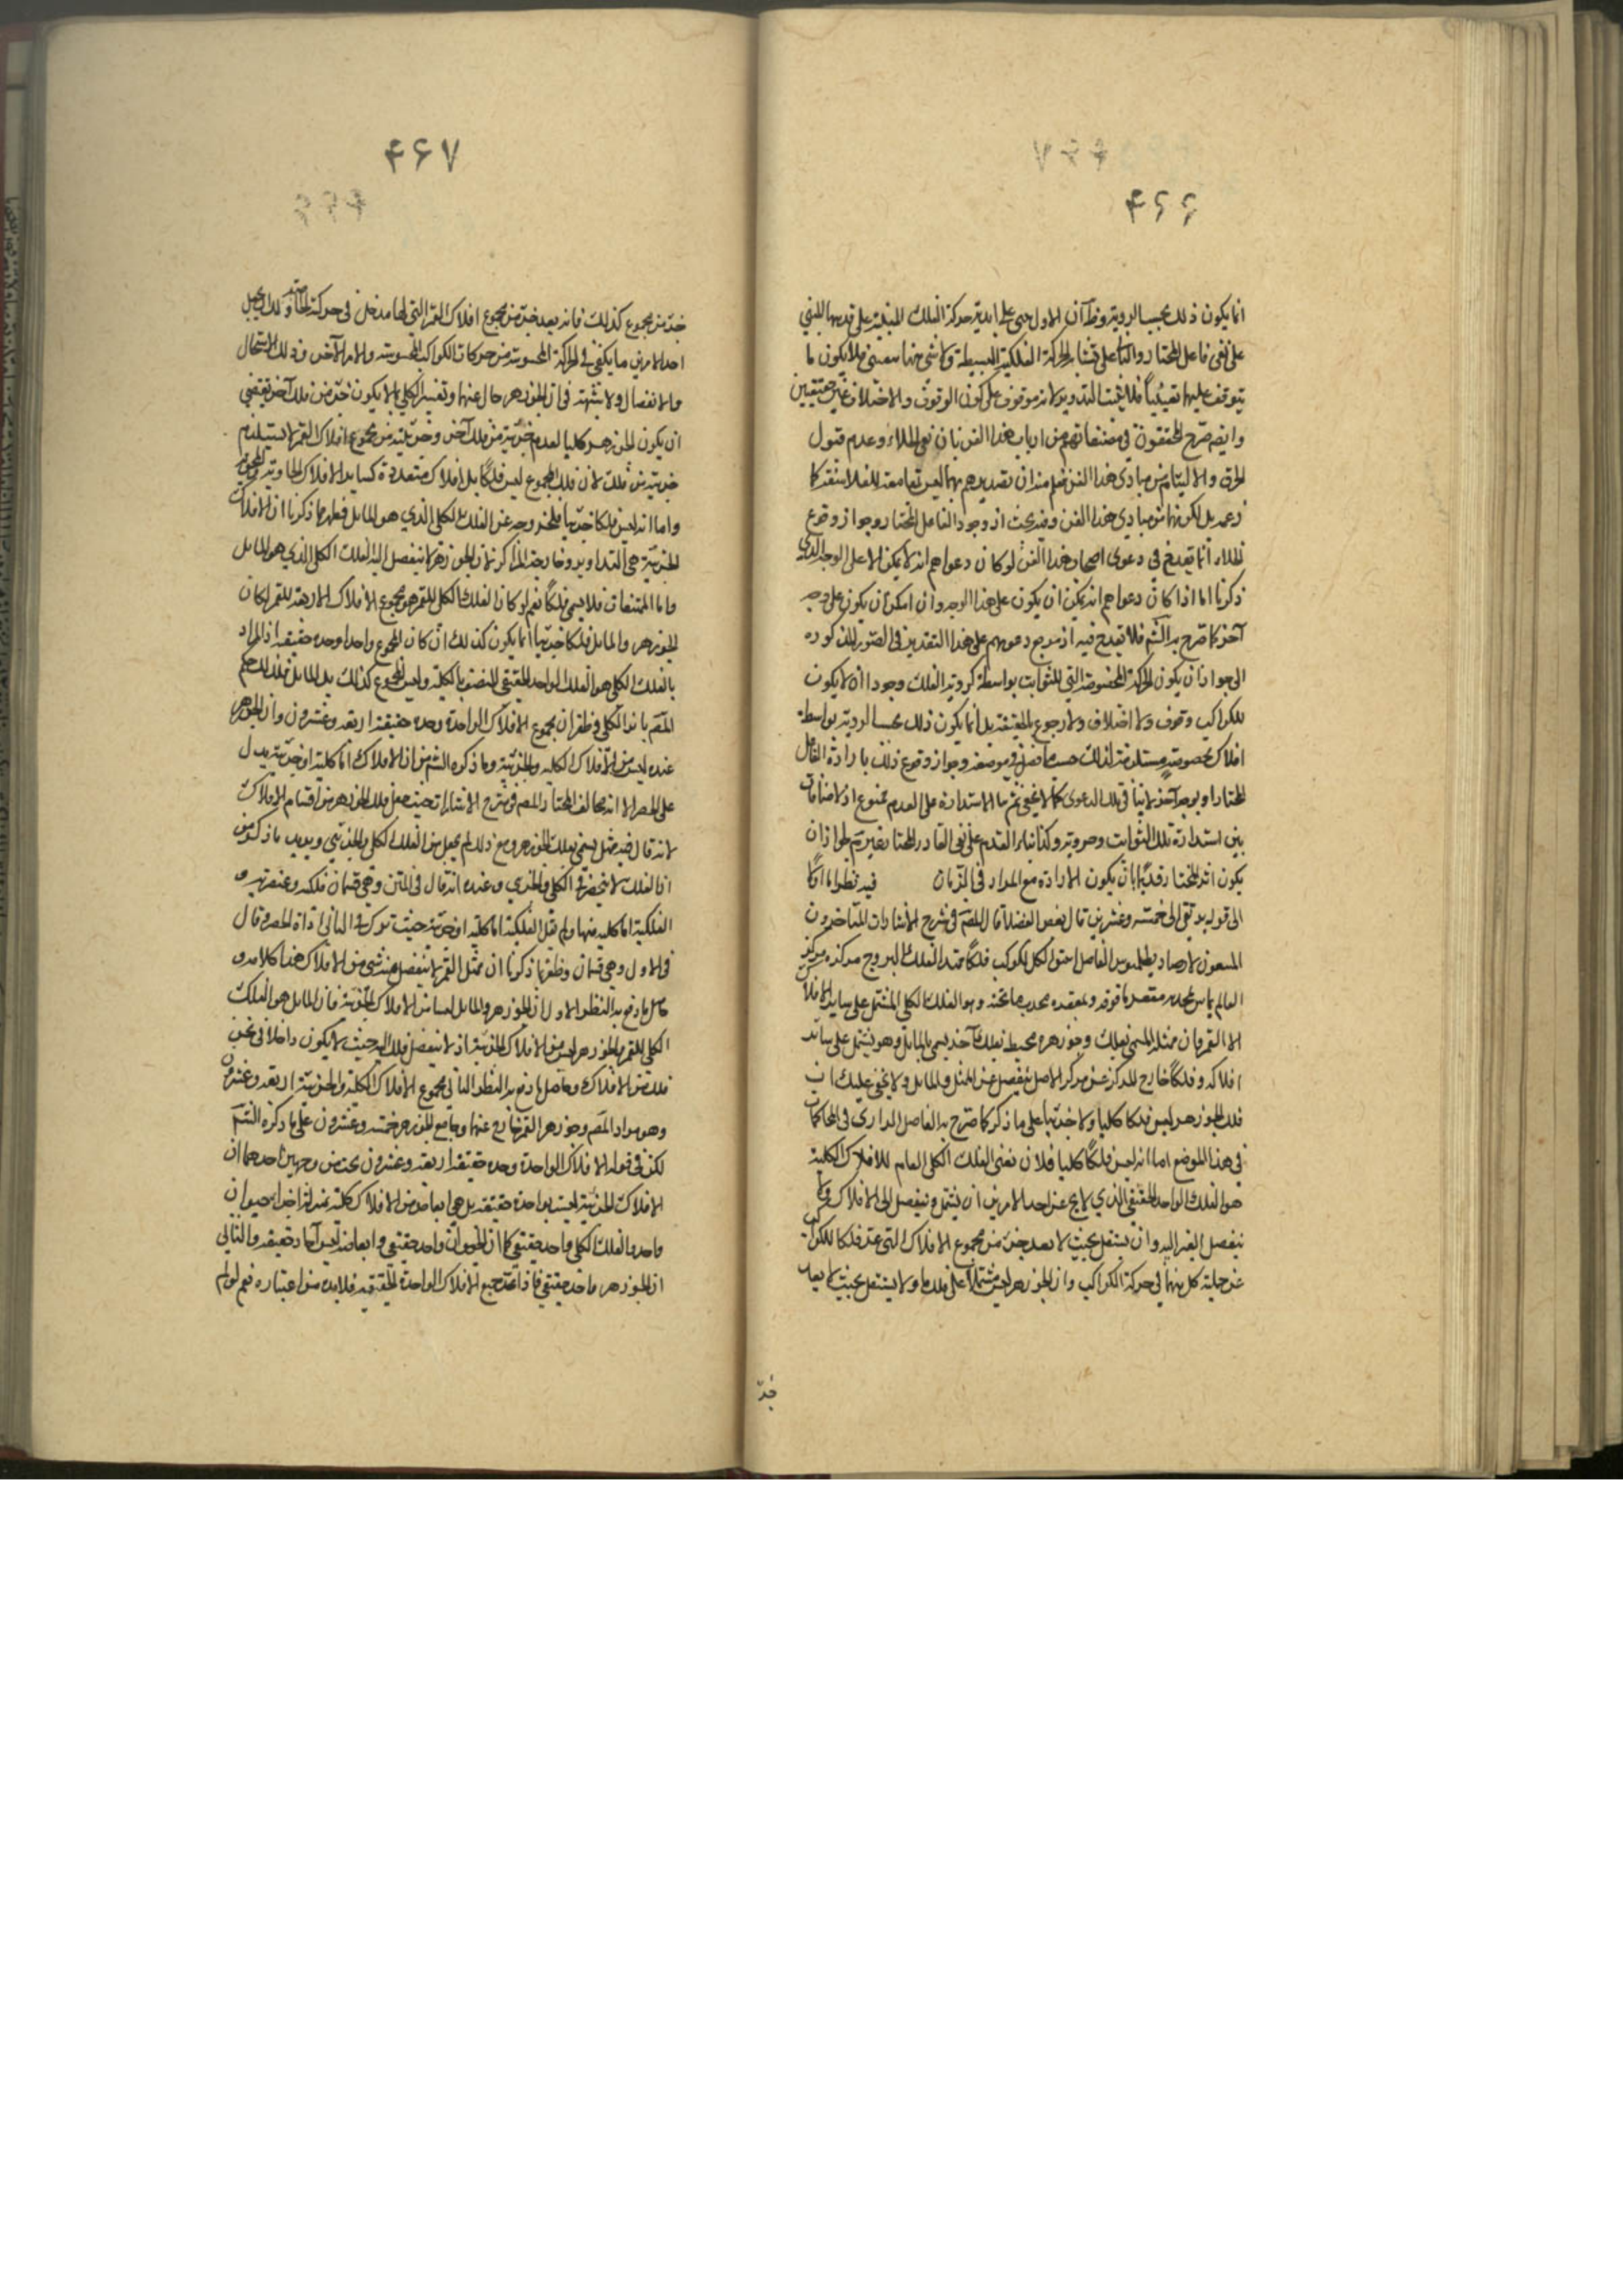 ۴۶۶
انما يكون ذلك بحسب الروية وظ آن الاول مبنى على ابدية حركة الفلك المبنية على قدمها المبنى
على نفى فاعل المختار والثانى على تشابه الحركة الفلكية البسيطة ولا شى منها فلا يكون ما
يتوقف عليها يقينياً فلا يثبت التدوير لانه موقوف على كون الوقوف والاختلاف غير حقيقيين
وايضه صرح المحققون فى مصنفاتهم من ارباب هذا الفن بان نفى الخلاء وعدم قبول
الخرق والالتيام من مبادى هذا الفن فعلم منه ان تصديرهم بهما ليس متابعة للفلاسفة كما
زعم بل لكونهما من مبادى هذا الفن وفيه بحث اذ وجود الفاعل المختار وجواز وقوع
الخلاء انما يقدح فى دعوى اصحاب هذا الفن لو كان دعواهم انه لا يمكن الا على الوجه الذى
ذكرنا اما اذا كان دعواهم انه يمكن ان يكون على هذا الوجه وان امكن ان يكون على وجه
آخر كما صرح به الشم فلا يقدح فيه اذ مرجع دعويهم على هذا التقدير فى الصور المذكورة
الى جواز ان يكون الحركة المخصوصة التى للثوابت بواسطة كروية الفلك وجودا ان لا يكون
للكواكب وقوف ولا اختلاف ولا رجوع بالحقيقة بل انما يكون ذلك بحسب الروية بواسطة
افلاك مخصوصة مستلزمة لذلك حسبما فصل فى موضعه وجواز وقوع ذلك بارادة الفاعل
المختار او بوجه آخر لا ينافى تلك الدعوى كما لا يخفى ثم بنا الاستدارة على العدم ممنوع اذ لا منافات
بين استدارة تلك الثوابت وحدوثه وكذا بناء القدم على نفى القادر المختار غير تم لجواز ان
يكون اثر المختار قديماً بان يكون الارادة مع المراد فى الزمان فيه نظر اما اولا
الى قوله بد تقى الى خمسة وعشرين قال بعض الفضلا قال المصّ فى شرح الاشارات المتاخرون
المتبعون لارصاد بطلميوس الفاضل اثبتوا لكل كوكب فلكاً ممثلا لفلك البروج مركزه مركز
العالم يماس بمحدبه مقعر ما فوقه وبمقعره محدب ما تحته وهو الفلك الكلى المشتمل على ساير الافلا
الا القمر فان ممثله المسمى بفلك جوزهره محيط بفلك آخر يسمى بالمايل وهو يشتمل على ساير
افلاكه وفلكاً خارج المركز عن مركز الاصل ينفصل عن الممثل والمايل ولا يخفى عليك ان
فلك الجوزهر ليس فلكا كليا ولا جزئيا على ما ذكر كما صرح به الفاضل الدارى فى المحاكمات
فى هذا الموضع اما انه ليس فلكاً كليا فلان معنى الفلك الكلى العام للافلاك الكلية
هو الفلك الواحد الحقيقى الذى لا يخ عن احد الامرين ان يشتمل وينفصل الى الافلاك ولا
ينفصل الغير اليه وان يستقل بحيث لا يعد جزء من مجموع الافلاك التى عد فلكا للكواكب
عن جملة كل منهما فى حركة الكواكب وان الجوزهر ليس مشتملا على فلك ما ولا يستقل بحيث لا يعد
جزء
۴۶۷
جزء من مجموع كذلك فانه يعد جزء من مجموع افلاك القمر التى لها مدخل فى حركة الخاصة وكذلك يحمل
احد الامرين ما يكفى فى الحركة المحسوسة من حركات الكواكب المحسوسة والامر الآخر فى ذلك الاشتمال
والانفصال ولا شبهة فى ان الجوزهر خال عنهما وتفسير الكلى بما لا يكون جزء من فلك آخر يقتضى
ان يكون الجوزهر كليا لعدم جزئيته من فلك آخر وجزئيته من مجموع افلاك القمر لا يستلزم
جزئيته من فلك لان فلك المجموع ليس فلكاً بل افلاك متعددة كساير الافلاك الحاوية
واما انه ليس فلكا جزئيا فلخروجه عن الفلك الكلى الذى هو المايل فظهر بما ذكرنا ان الافلاك
الجزئية هى التداوير وخارجة المراكز لان الجوزهر لا ينفصل اليه الفلك الكلى الذى هو المايل
واما المتممات فلا يسمى فلكاً نعم لو كان الفلك الكلى للقمر هو مجموع الافلاك الاربعة للقمر لكان
الجوزهر والمايل فلكا جزئيا انما يكون كذلك ان كان المجموع واحدا وحدة حقيقية اذ المراد
بالفلك الكلى هو الفلك الواحد الحقيقى المتصف بالكلية وليس المجموع كذلك بل المايل فلذلك حكم
المصّ بانه الكلى فظهر ان مجموع الافلاك الواحدة وحدة حقيقية اربعة وعشرون وان الجوزهر
عنده ليس من الافلاك الكلية والجزئية وما ذكره الشم من ان الافلاك اما كلية او جزئية يدل
على الحصر الا انه مخالف المختار المصّ فى شرح الاشارات حيث جعل فلك الجوزهر من اقسام الافلاك
لانه قال فيه ممثل يسمى بفلك الجوزهر ومع ذلك لم يجعل من الفلك الكلى والجزئى ويويد ما ذكر من
ان الفلك لا ينحصر فى الكلى والجزئى وعنده انه قال فى المتن وهى قسمان فلكية وعنصرية و
الفلكية اما كلية منها ولم يقل الفلكية اما كلية او جزئية حيث ترك فى الثانى اداة الحصر وقال
فى الاول وهى قسمان وظهر بما ذكرنا ان ممثل القمر لا ينفصل عنه شى من الافلاك هذا كلامه و
حاصل ما دفع به النظر الاول ان الجوزهر والمايل ليسا من الافلاك الجزئية فان المايل هو الفلك
الكلى للقمر والجوزهر ليس من الافلاك الجزئية اذ لا ينفصل فلك اليه حيث لا يكون داخلا فى ثخن
فلك من الافلاك وحاصل ما دفع به النظر الثانى مجموع الافلاك الكلية والجزئية اربعة وعشرون
وهو مراد المصّ وجوزهر القمر خارج عنها وهو مع الجوزهر خمسة وعشرون على ما ذكره الشم
لكن فى قوله الافلاك الواحدة وحدة حقيقية اربعة وعشرون بحث من وجهين احدهما ان
الافلاك الجزئية ليست بواحدة حقيقة بل هى ابعاض من الافلاك كلية بمنزلة اجزاء حيوان
واحد والفلك الكلى واحد حقيقى كما ان الحيوان واحد حقيقى وابعاضه ليس آحاد حقيقة والثانى
ان الجوزهر واحد حقيقى فاذا عد جميع الافلاك الواحدة الحقيقية فلا بد من اعتباره نعم لو لم